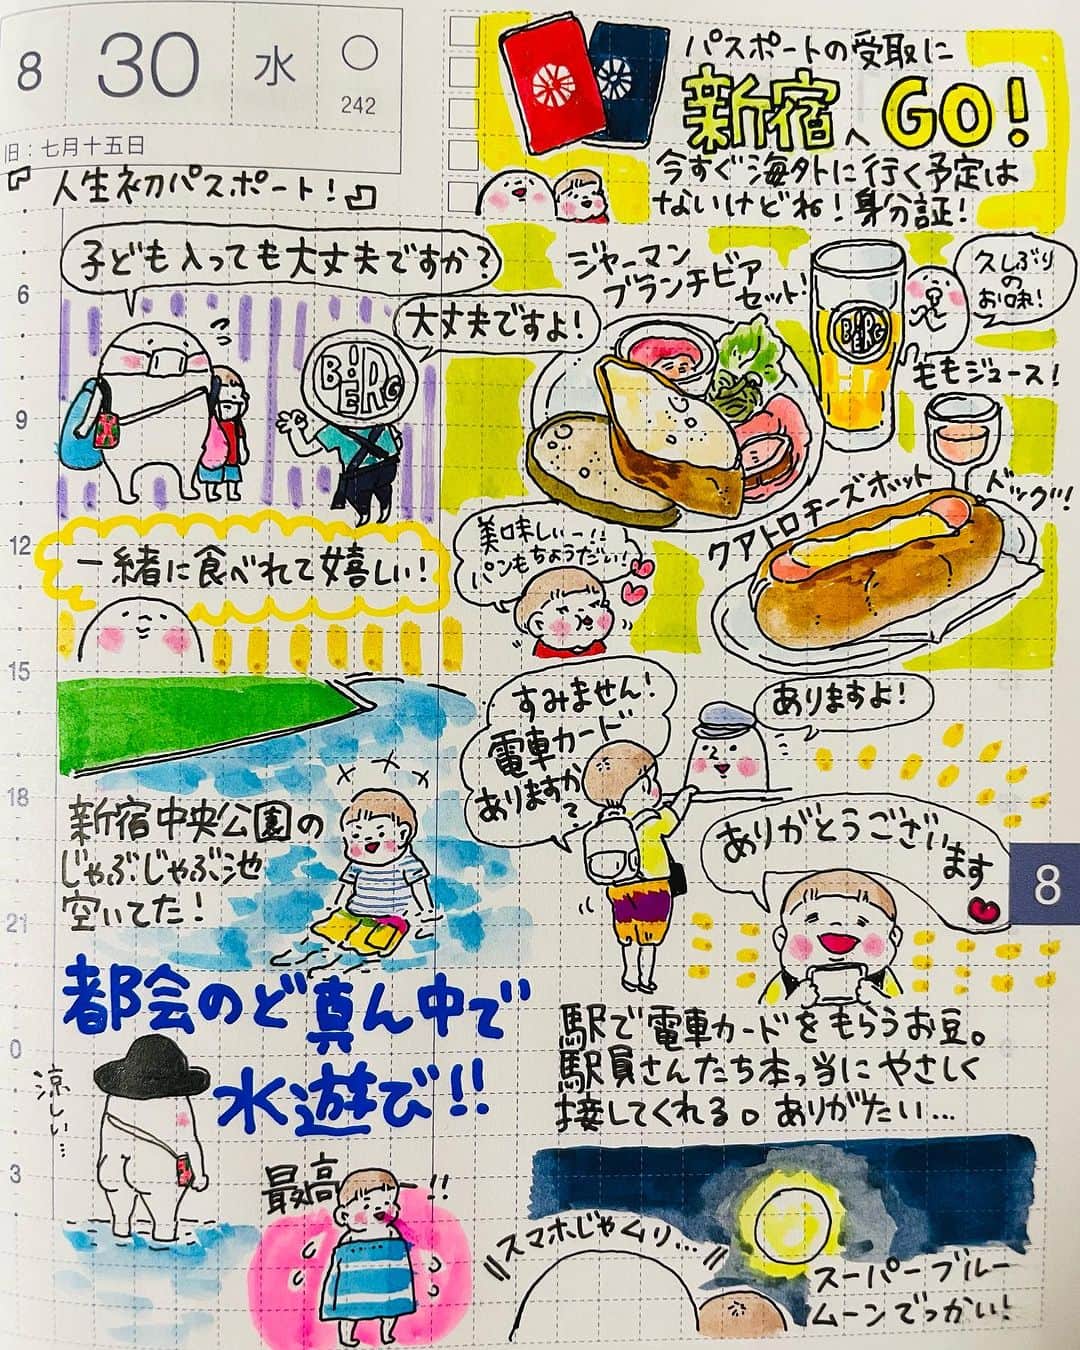 8
30
水
242
旧:七月十五日
人生初パスポート!
パスポートの受取に
新宿へGO!
今すぐ海外に行く予定は
ないけどね!身分証!
子ども入っても大丈夫ですか?
大丈夫ですよ!
BERG
一緒に食べれて嬉しい!
ジャーマン
ブランチビア
セット!
BERG
久しぶり
の
お味!
ももジュース!
クアトロチーズホット
ドッグ!!
美味しぃー!!
パンもちょうだい!
新宿中央公園の
じゃぶじゃぶ池
空いてた!
都会のど真ん中で
水遊び!!
涼しい…
最高ー!!
すみません!
電車カード
ありますか?
ありますよ!
ありがとうござい
ます
駅で電車カードをもらうお豆。
駅員さんたち本っ当にやさしく
接してくれる。ありがたい…
スマホじゃムリ…
スーパーブルー
ムーンでっかい!
6
9
12
15
18
21
0
3
8